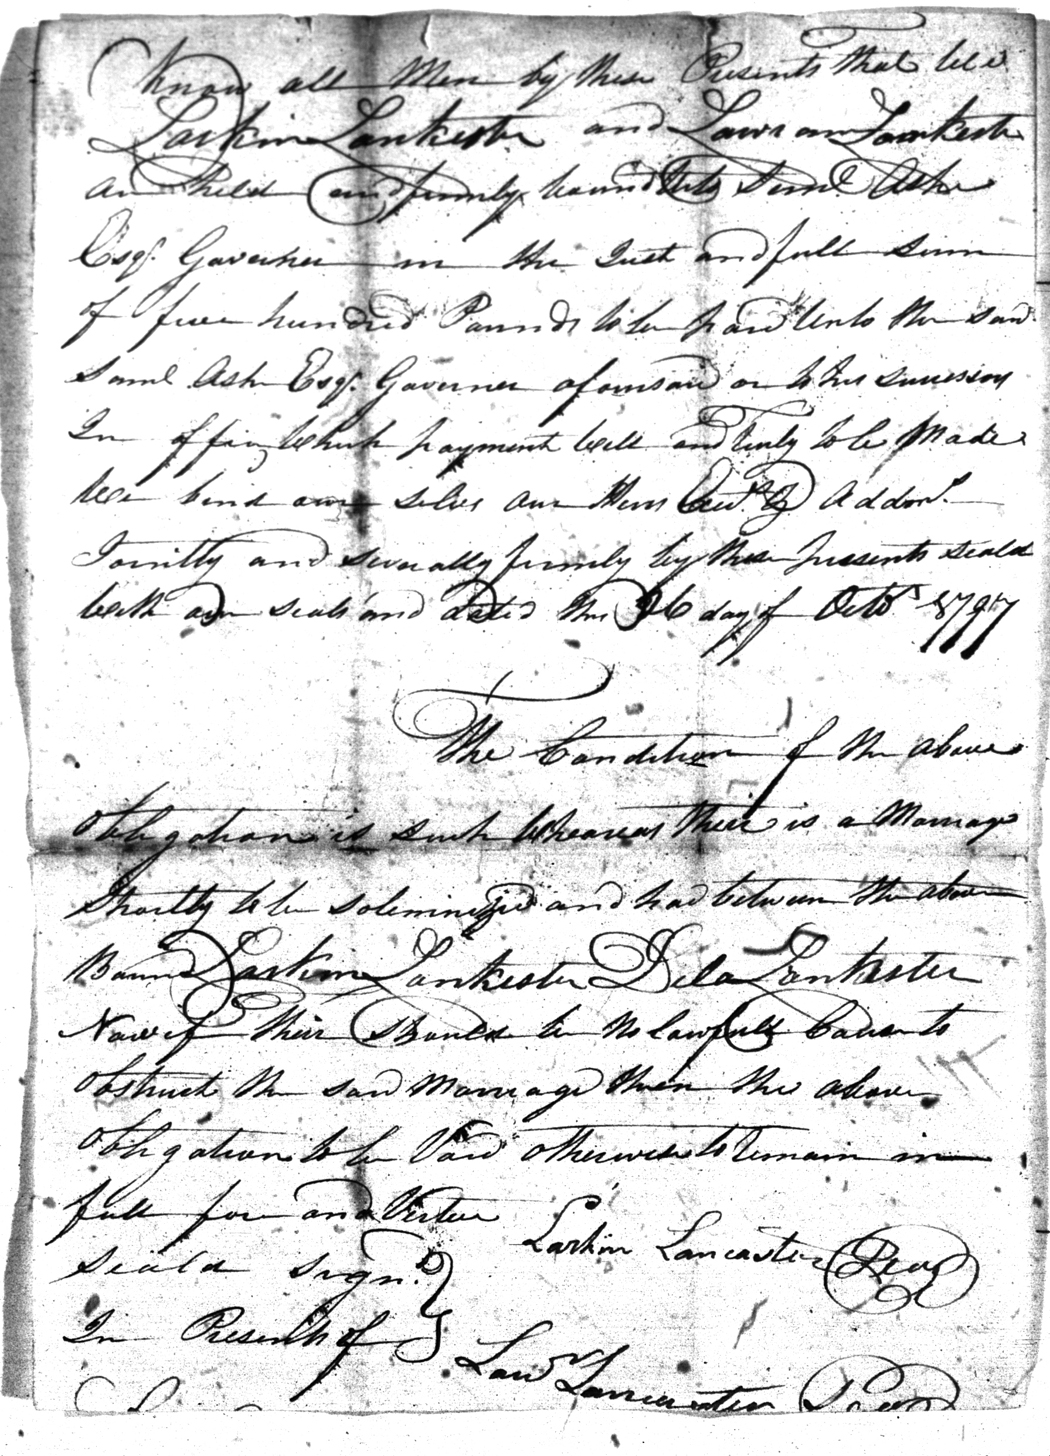 Know all Men by these Presents that We
Larkin Lankester and Lawram Lankester
are Held and firmly bound Unto Saml Ashe
Esqr. Governer in the Just and full Sum
of five hundred Pounds to be paid Unto the said
Saml Ash Esqr. Governer aforesaid or to his successors
In office Which payment Well and Truly to be Made
We bind our selves our Heirs & Addmrs.
Jointly and severally firmly by these presents seald
With our seals and dated this 26 day of Octbr 1797
The Condition of the above
obligation is such Wheareas their is a Marriage
Shortly to be solemnized and had between the above
Bound Larkin Lankester Dela Lankester
Now if their Should be No lawfull Cause to
obstruct the said Marriage then the above
obligation to be Void otherwise to Remain in
full force and Virtue
Seald signd
In Presents of
Larkin Lancaster Seal
Lawr Lancaster Seal